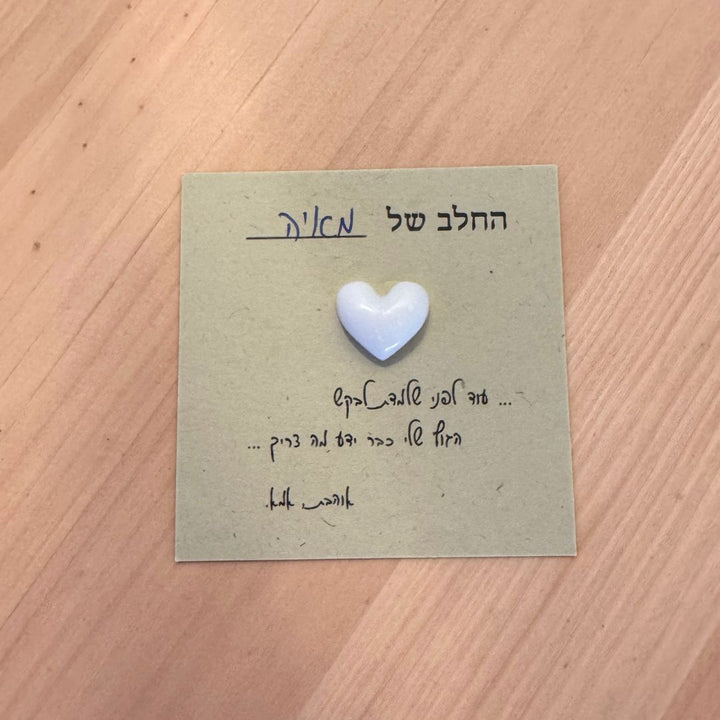 החלב של מאיה
... עוד לפני שלמדת לבקש
הגוף שלי כבר ידע מה צריך ...
אוהבת, אמא.